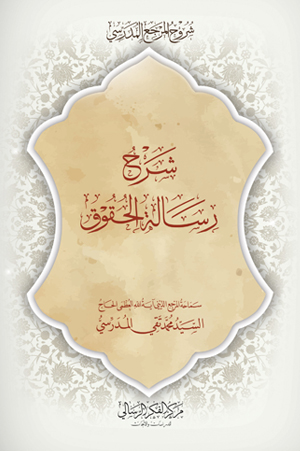 شروح المرجع المدرسي
شَرْحُ
رِسَالَةِ الحُقُوقِ
سماحة المرجع الديني آية الله العظمى الحاج
السيد محمد تقي المدرسي
مركز الفكر الرسالي
للدراسات والأبحاث